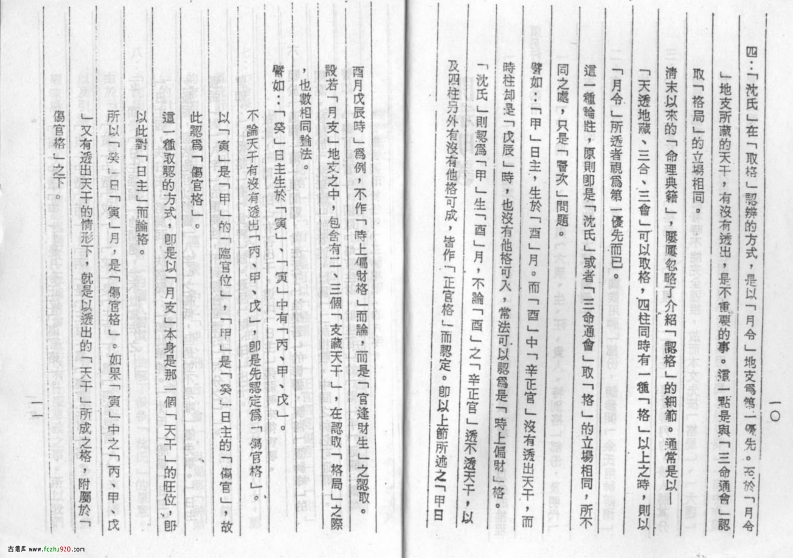 一〇
四：「沈氏」在「取格」認辨的方式，是以「月令」地支爲第一優先。至於「月令
」地支所藏的天干，有沒有透出，是不重要的事。這一點是與「三命通會」認
取「格局」的立場相同。
清末以來的「命理典籍」，屢屢忽略了介紹「認格」的細節。通常是以—
「天透地藏、三合、三會」可以取格，四柱同時有一種「格」以上之時，則以
「月令」所透者視爲第一優先而已。
這一種論註，原則即是「沈氏」或者「三命通會」取「格」的立場相同，所不
同之處，只是「層次」問題。
譬如：「甲」日主，生於「酉」月。而「酉」中「辛正官」沒有透出天干，而
時柱却是「戊辰」時，也沒有他格可入，常法可以認爲是「時上偏財」格。
「沈氏」則認爲「甲」生「酉」月，不論「酉」之「辛正官」透不透天干，以
及四柱另外有沒有他格可成，皆作「正官格」而認定。即以上節所述之「甲日
酉月戊辰時」爲例，不作「時上偏財格」而論，而是「官逢財生」之認取。
設若「月支」地支之中，包含有二、三個「支藏天干」，在認取「格局」之際
，也數相同論法。
譬如：「癸」日主生於「寅」、「寅」中有「丙、甲、戊」。
不論天干有沒有透出「丙、甲、戊」，即是先認定爲「傷官格」。
以「寅」是「甲」的「臨官位」，「甲」是「癸」日主的「傷官」，故
此認爲「傷官格」。
這一種取認的方式，即是以「月支」本身是那一個「天干」的旺位，即
以此對「日主」而論格。
所以「癸」日「寅」月，是「傷官格」。如果「寅」中之「丙、甲、戊
」又有透出天干的情形下，就是以透出的「天干」所成之格，附屬於「
傷官格」之下。
一一
古籍库 www.fczhu920.com